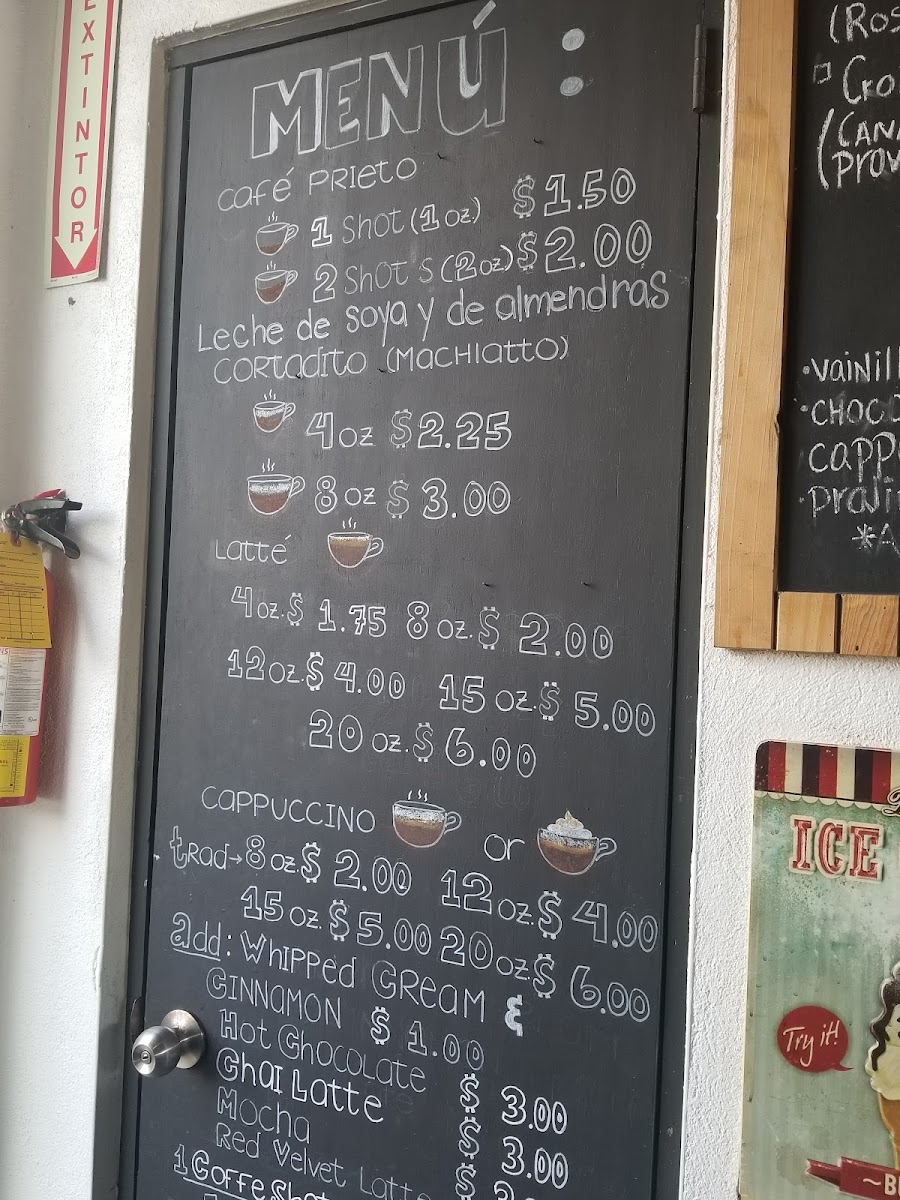 EXTINTOR
MENÚ :
Café Prieto
1 Shot (1 oz.) $1.50
2 Shots (2 oz) $2.00
Leche de Soya y de almendras
Cortadito (Machiatto)
4 oz $2.25
8 oz $3.00
Latté
4 oz. $1.75 8 oz. $2.00
12 oz. $4.00 15 oz. $5.00
20 oz. $6.00
Cappuccino or
trad→8 oz $2.00 12 oz. $4.00
15 oz. $5.00 20 oz. $6.00
add: Whipped Cream &
Cinnamon $1.00
Hot Chocolate $3.00
Chai Latte $3.00
Mocha
Red Velvet Latte
1 Coffe Shot
(Ros
Cro
(Can
Prov
•Vainill
•Choco
Capp
•Prali
*A
ICE
Try it!
~B